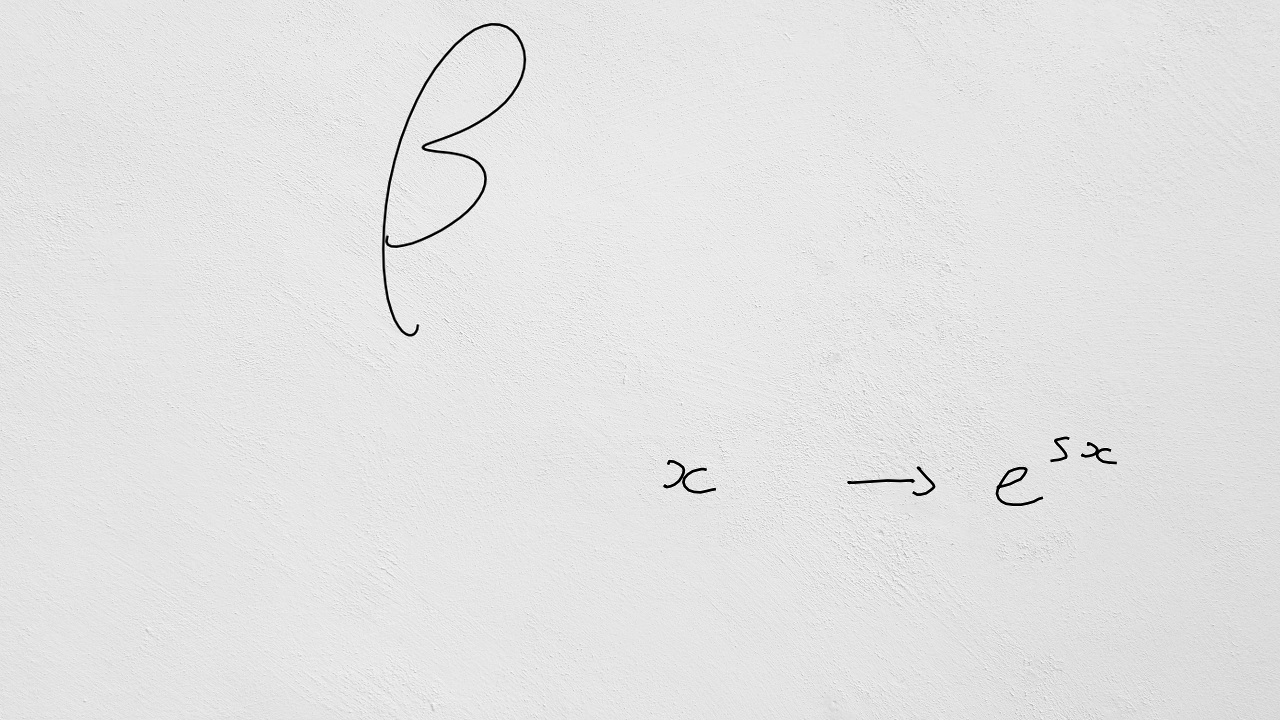 β
x → e^{sx}